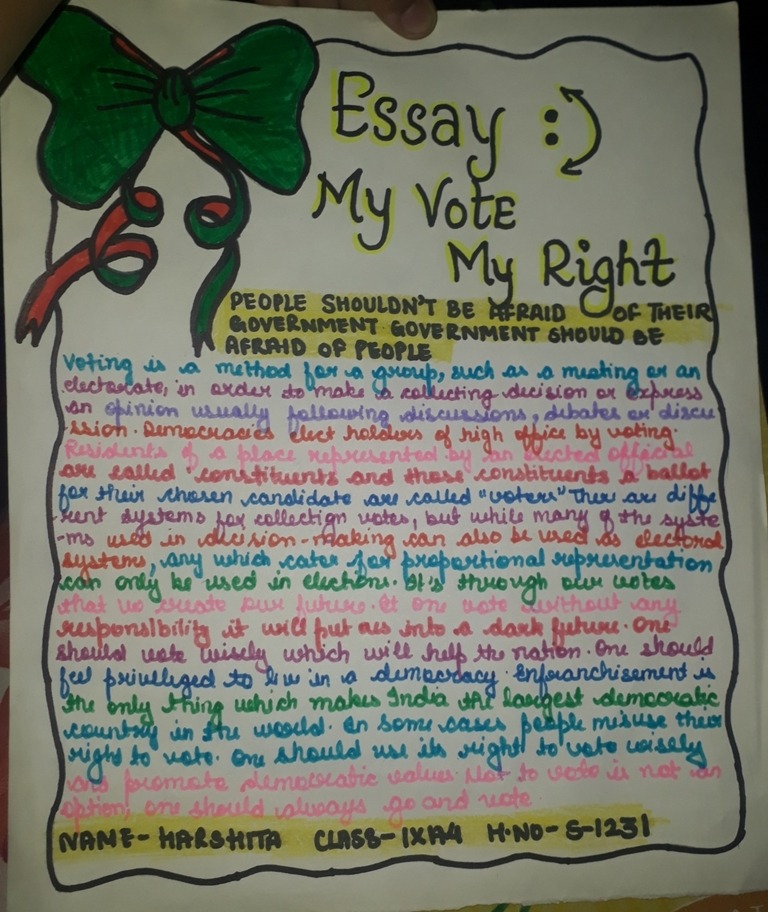 Essay :)
My Vote
My Right
PEOPLE SHOULDN'T BE AFRAID OF THEIR
GOVERNMENT GOVERNMENT SHOULD BE
AFRAID OF PEOPLE
Voting is a method for a group, such as a meeting or an
electorate, in order to make a collecting decision or express
an opinion usually following discussions, debates or discu
-ssion. Democracies elect holders of high office by voting.
Residents of a place represented by an elected official
are called "constituents and those constituents a ballot
for their chosen candidate are called "voters" Ther are diffe
-rent systems for collection votes, but while many of the syste
-ms used in decision-making can also be used as electoral
systems, any which cater for proportional representation
can only be used in elections. It's through our votes
that we create our future. It one vote without any
responsibility it will put us into a dark future. One
should vote wisely which will help the nation. One should
feel privilieged to live in a democracy. Enfranchisement is
the only thing which makes India the largest democratic
country in the world. In some cases people misuse their
right to vote. One should use its right to vote wisely
and promote democratic values. Not to vote is not an
option, one should always go and vote.
NAME- HARSHITA CLASS- IXA4 H.NO- S-1231